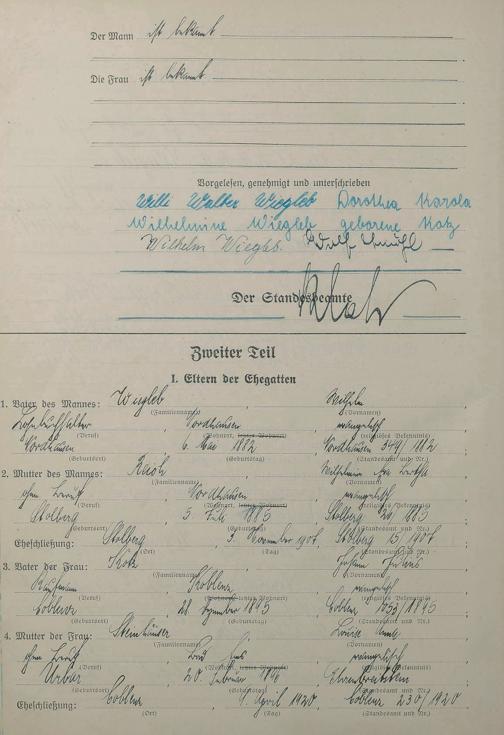 Der Mann ist bekannt
Die Frau ist bekannt
Vorgelesen, genehmigt und unterschrieben
Willi Walter Wiegleb Dorothea Karola
Wilhelmine Wiegleb geborene Kotz
Wilhelm Wiegleb.
Der Standesbeamte
Zweiter Teil
I. Eltern der Ehegatten
1. Vater des Mannes: Wiegleb, Wilhelm,
(Familienname) (Vornamen)
Nordhausen, evangelisch
(Beruf) (Wohnort, letzter Wohnort) (religiöses Bekenntnis)
Nordhausen 6. Mai 1882 Nordhausen 349/1882
(Geburtsort) (Geburtstag) (Standesamt und Nr.)
2. Mutter des Mannes: Wilhelmine
(Familienname) (Vornamen)
ohne Beruf, Nordhausen, evangelisch
(Beruf) (Wohnort, letzter Wohnort) (religiöses Bekenntnis)
Stolberg 1885 Stolberg
(Geburtsort) (Geburtstag) (Standesamt und Nr.)
Eheschließung: Stolberg 3. November 1906 Stolberg 15/1906
(Ort) (Tag) (Standesamt und Nr.)
3. Vater der Frau: Kotz, Johann
(Familienname) (Vornamen)
Kaufmann, Koblenz, evangelisch
(Beruf) (Wohnort, letzter Wohnort) (religiöses Bekenntnis)
Coblenz 28. Dezember 1895 Coblenz 1895
(Geburtsort) (Geburtstag) (Standesamt und Nr.)
4. Mutter der Frau: Louise
(Familienname) (Vornamen)
ohne Beruf, evangelisch
(Beruf) (Wohnort, letzter Wohnort) (religiöses Bekenntnis)
Urbar 20. Februar 1896 Ehrenbreitstein
(Geburtsort) (Geburtstag) (Standesamt und Nr.)
Eheschließung: Coblenz April 1920, Coblenz 230/1920
(Ort) (Tag) (Standesamt und Nr.)